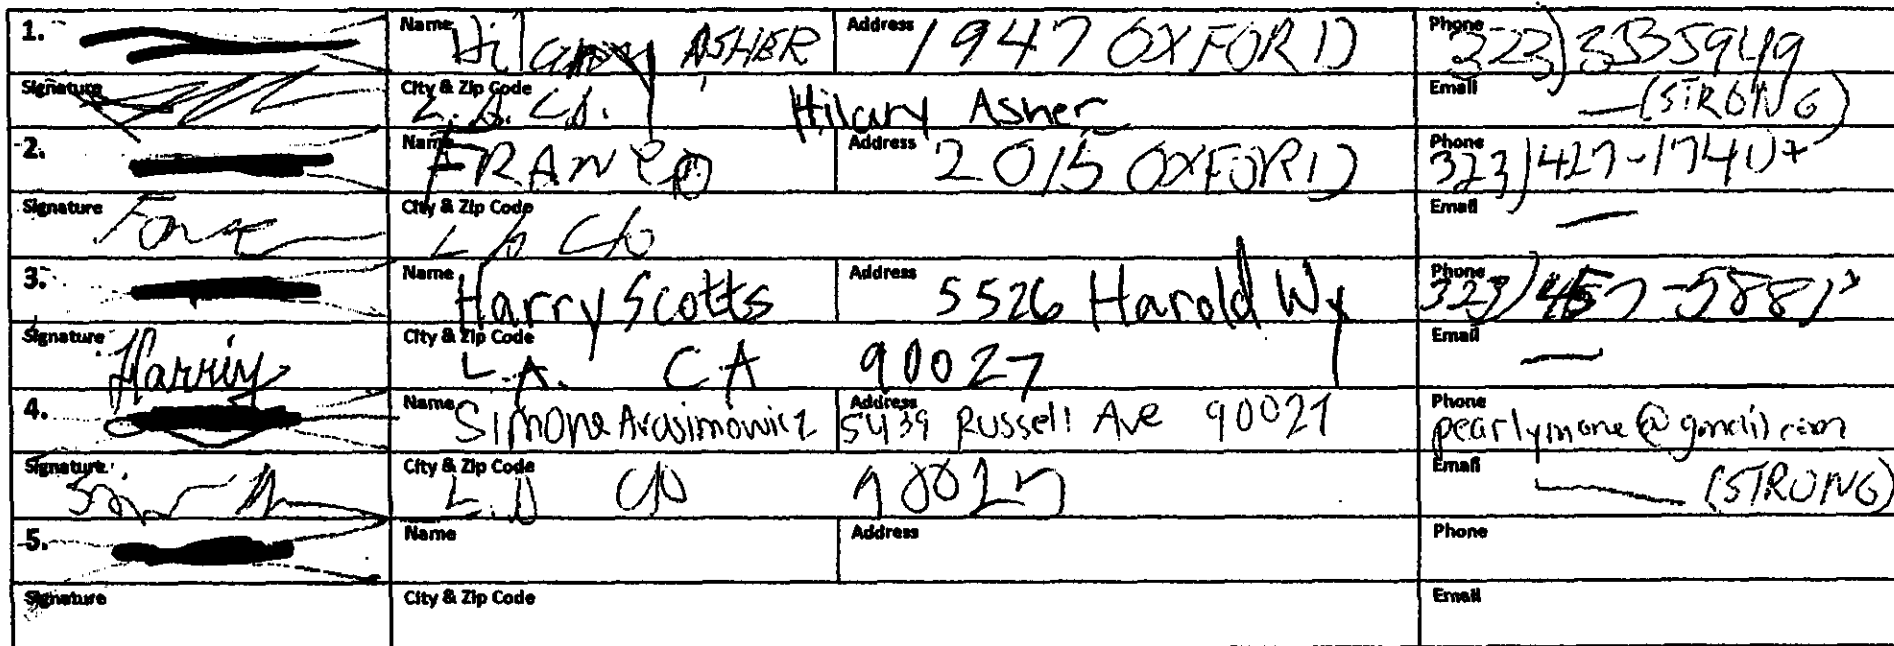 1. Name Hilary ASHER Address 1947 OXFORD Phone 323) 3335949
Signature City & Zip Code L.A. CA. Hilary Asher Email — (STRONG)
2. Name FRANCO Address 2015 OXFORD Phone 323) 427-1740
Signature City & Zip Code LA CA Email —
3. Name Harry Scotts Address 5526 Harold Wy Phone 323) 457-5881
Signature Harriy City & Zip Code L.A. CA 90027 Email —
4. Name Simone Arasimowicz Address 5439 Russell Ave 90027 Phone pearlymone@gmail.com
Signature City & Zip Code L.A CA 90027 Email — (STRONG)
5. Name Address Phone
Signature City & Zip Code Email